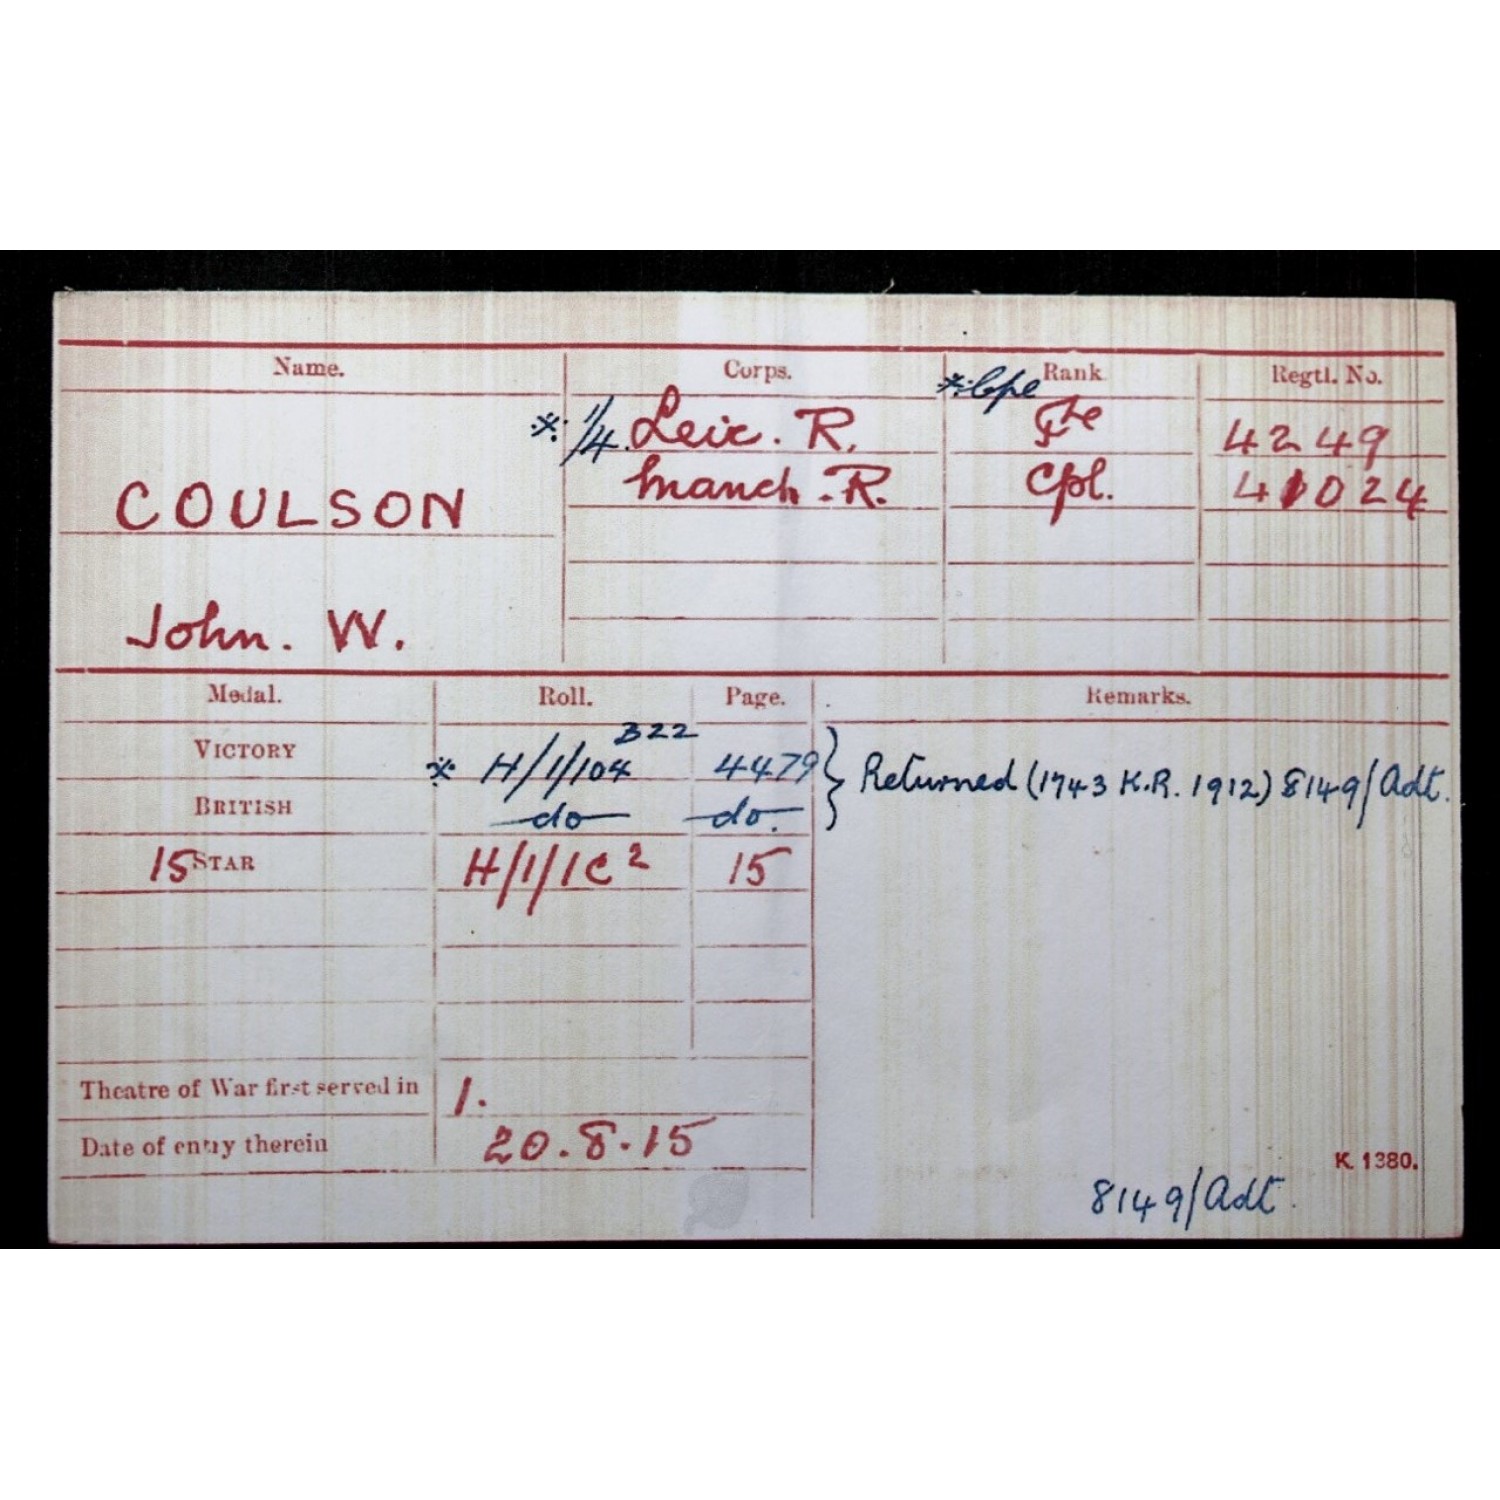 Name. Corps. Rank Regtl. No.
※ 1/4 Leic. R. ※ Cpl Pte 4249
COULSON Manch. R. Cpl. 41024
John. W.
Medal. Roll. Page. Remarks.
VICTORY ※ H/1/104 B22 4479 } Returned (1743 K.R. 1912) 8149/Adt.
BRITISH do do.
15 STAR H/1/1C2 15
Theatre of War first served in 1.
Date of entry therein 20.8.15
K. 1380.
8149/Adt.